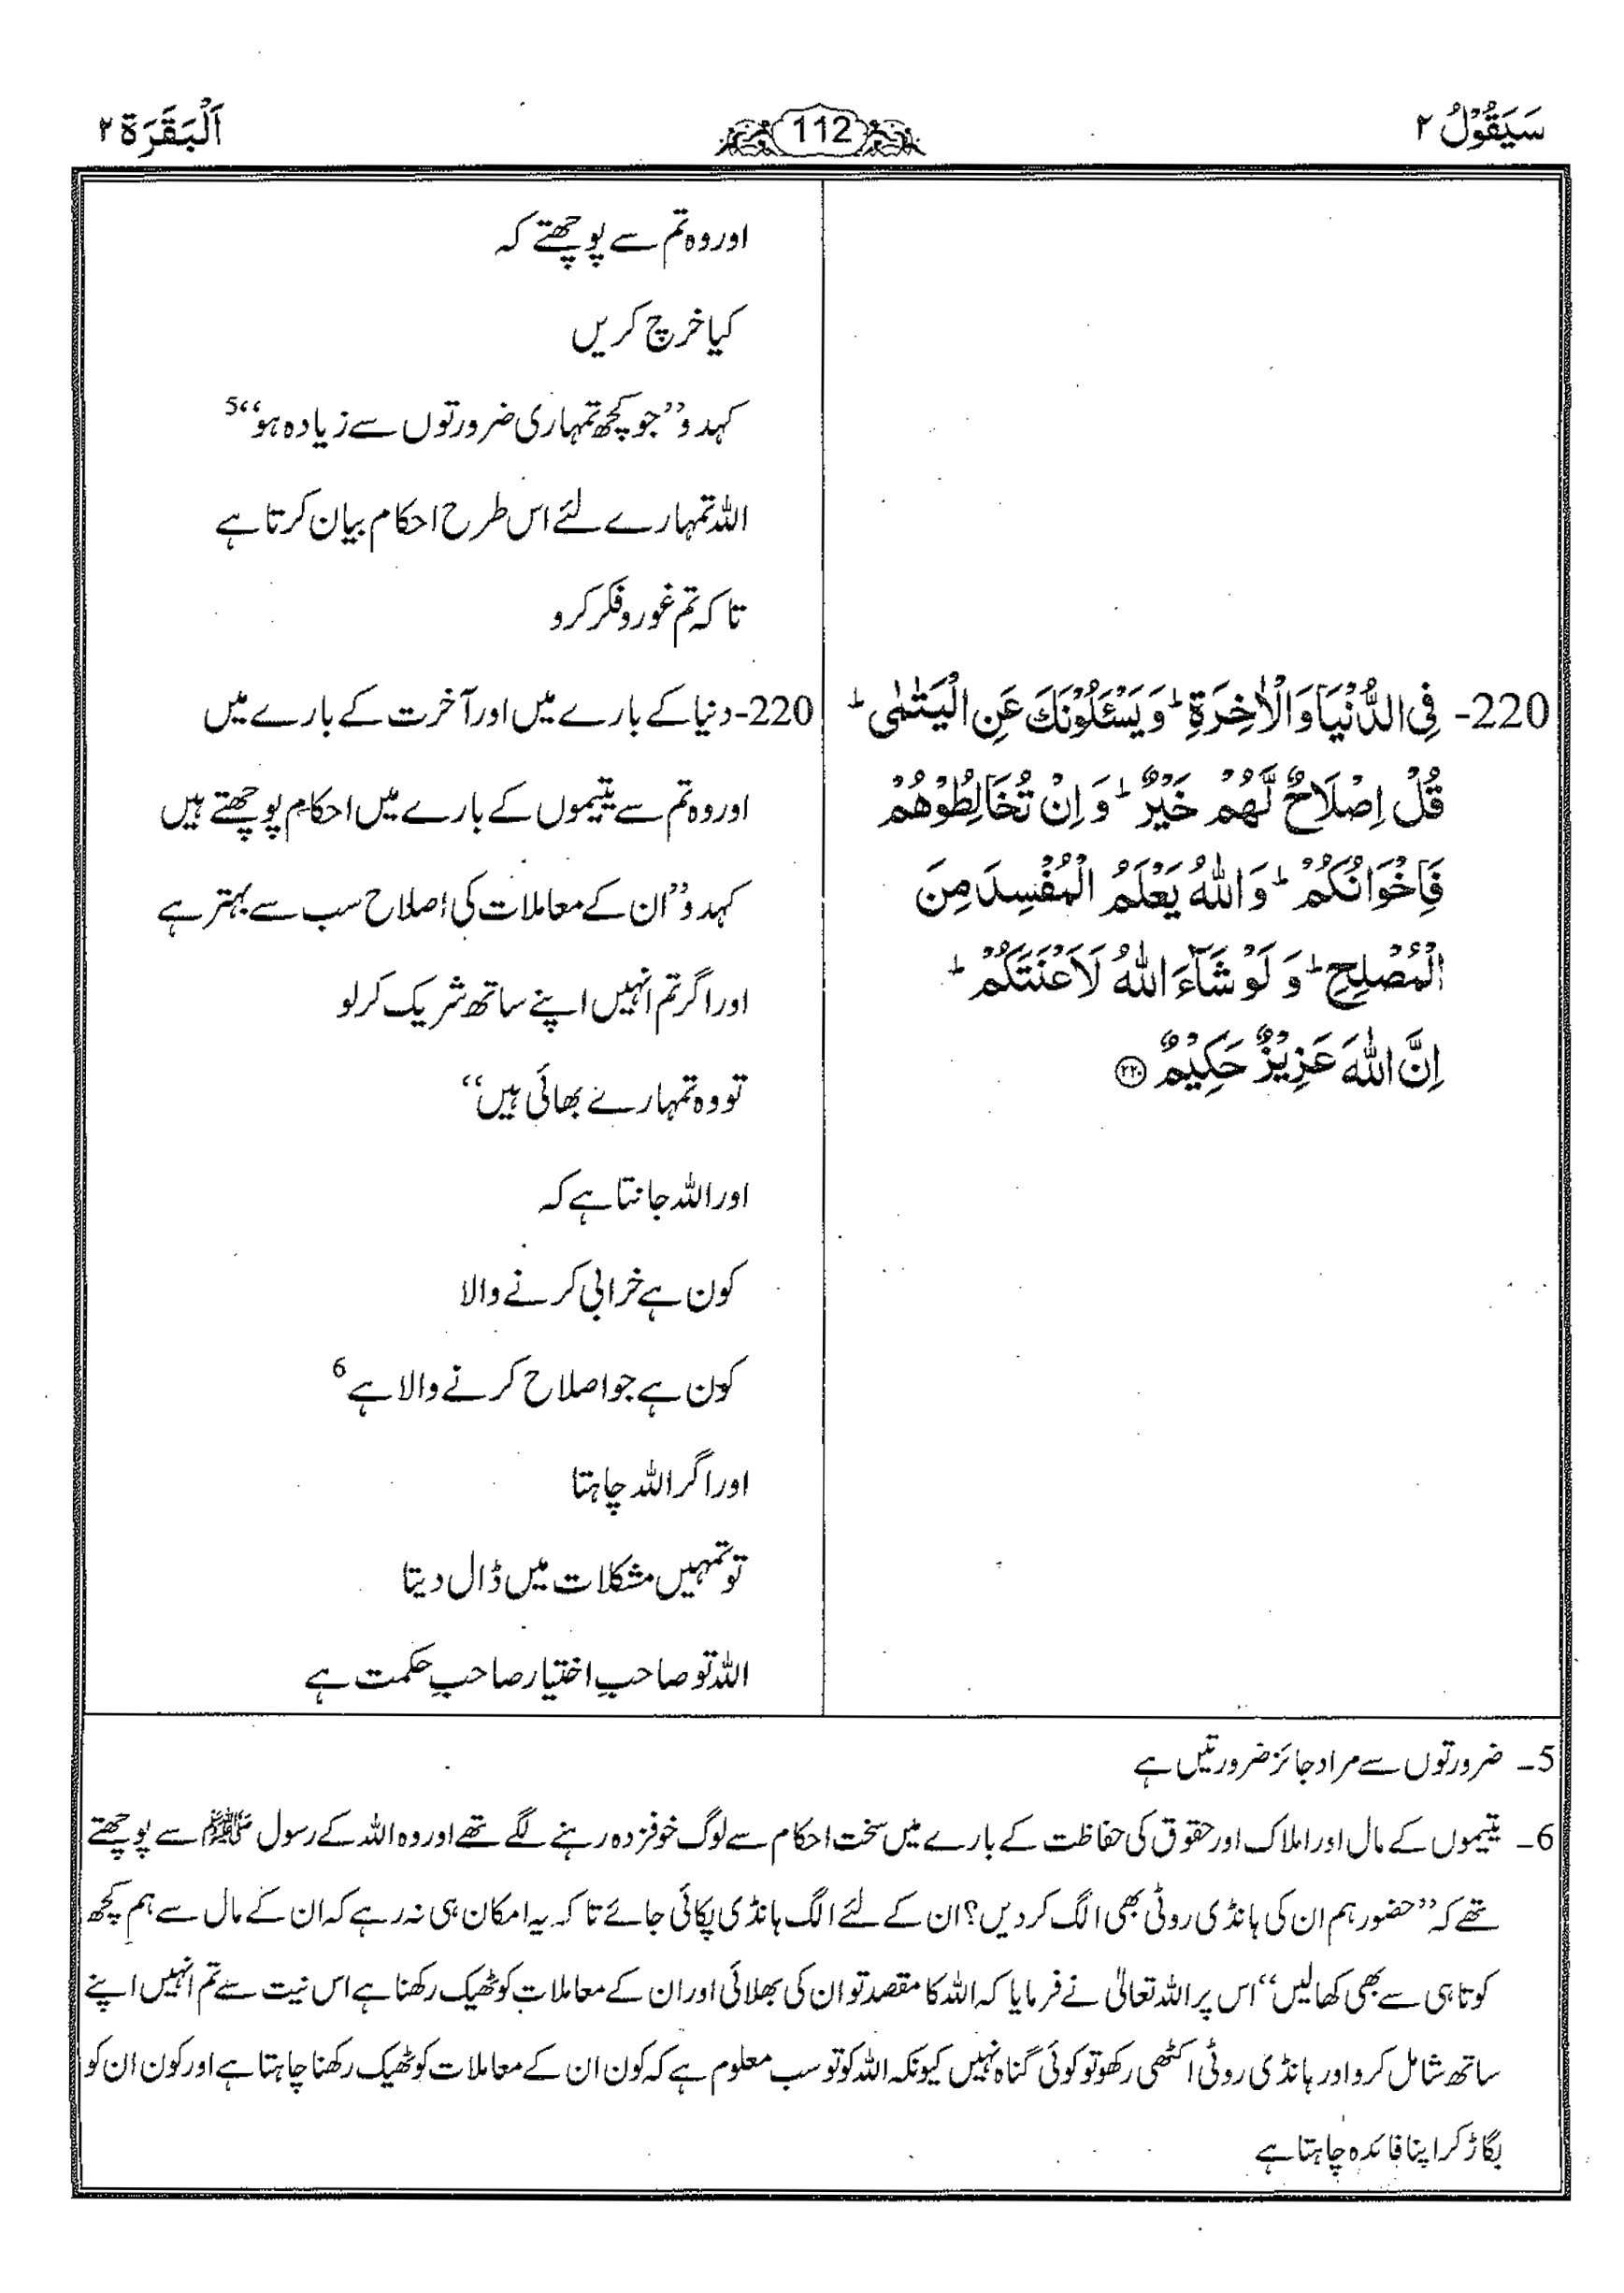 سَيَقُوْلُ ۲
112
اَلْبَقَرَة ۲
اور وہ تم سے پوچھتے کہ
کیا خرچ کریں
کہدو ’’جو کچھ تمہاری ضرورتوں سے زیادہ ہو‘‘5
اللہ تمہارے لئے اس طرح احکام بیان کرتا ہے
تا کہ تم غور و فکر کرو
220- فِی الدُّنْیَا وَالْاٰخِرَةِ ؕ وَ یَسْـَٔلُوْنَكَ عَنِ الْیَتٰمٰی ؕ
قُلْ اِصْلَاحٌ لَّهُمْ خَیْرٌ ؕ وَ اِنْ تُخَالِطُوْهُمْ
فَاِخْوَانُكُمْ ؕ وَ اللّٰهُ یَعْلَمُ الْمُفْسِدَ مِنَ
الْمُصْلِحِ ؕ وَ لَوْ شَآءَ اللّٰهُ لَاَعْنَتَكُمْ ؕ
اِنَّ اللّٰهَ عَزِیْزٌ حَكِیْمٌ ﴿۲۲۰﴾
220- دنیا کے بارے میں اور آخرت کے بارے میں
اور وہ تم سے یتیموں کے بارے میں احکام پوچھتے ہیں
کہدو ’’ان کے معاملات کی اصلاح سب سے بہتر ہے
اور اگر تم انہیں اپنے ساتھ شریک کرلو
تو وہ تمہارے بھائی ہیں‘‘
اور اللہ جانتا ہے کہ
کون ہے خرابی کرنے والا
کون ہے جو اصلاح کرنے والا ہے 6
اور اگر اللہ چاہتا
تو تمہیں مشکلات میں ڈال دیتا
اللہ تو صاحبِ اختیار صاحبِ حکمت ہے
5۔ ضرورتوں سے مراد جائز ضرورتیں ہے
6۔ یتیموں کے مال اور املاک اور حقوق کی حفاظت کے بارے میں سخت احکام سے لوگ خوفزدہ رہنے لگے تھے اور وہ اللہ کے رسول ﷺ سے پوچھتے
تھے کہ ’’حضور ہم ان کی ہانڈی روٹی بھی الگ کر دیں؟ ان کے لئے الگ ہانڈی پکائی جائے تا کہ یہ امکان ہی نہ رہے کہ ان کے مال سے ہم کچھ
کوتاہی سے بھی کھالیں‘‘ اس پر اللہ تعالیٰ نے فرمایا کہ اللہ کا مقصد تو ان کی بھلائی اور ان کے معاملات کو ٹھیک رکھنا ہے اس نیت سے تم انہیں اپنے
ساتھ شامل کرو اور ہانڈی روٹی اکٹھی رکھو تو کوئی گناہ نہیں کیونکہ اللہ کو تو سب معلوم ہے کہ کون ان کے معاملات کو ٹھیک رکھنا چاہتا ہے اور کون ان کو
بگاڑ کر اپنا فائدہ چاہتا ہے